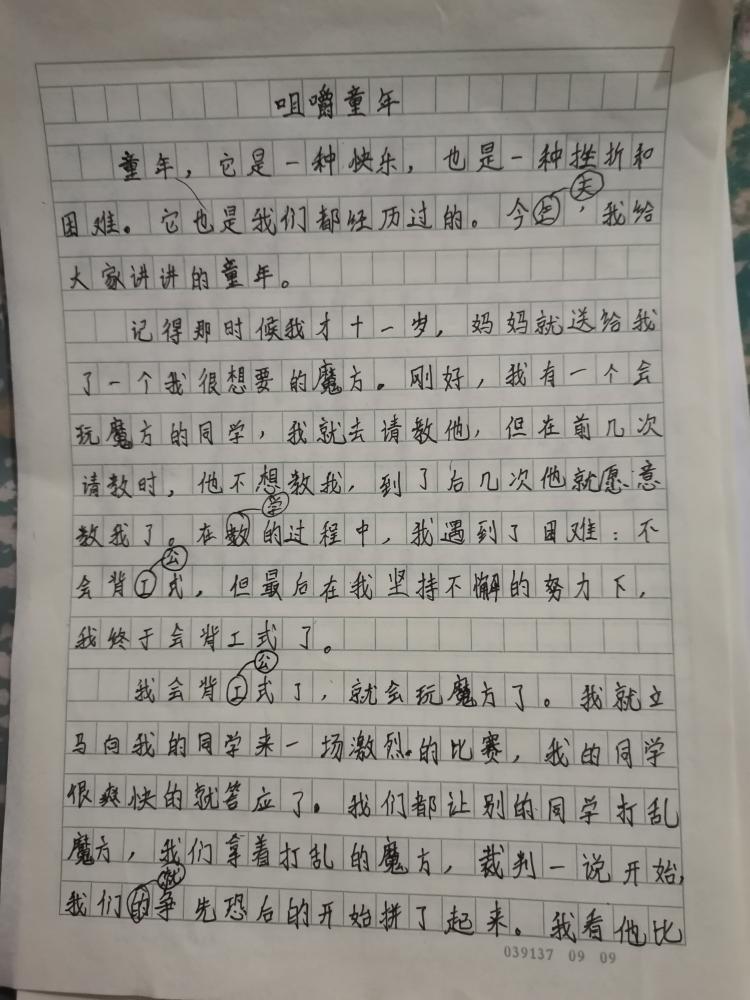 咀嚼童年
童年，它是一种快乐，也是一种挫折和
困难。它也是我们都经历过的。今天，我给
大家讲讲的童年。
记得那时候我才十一岁，妈妈就送给我
了一个我很想要的魔方。刚好，我有一个会
玩魔方的同学，我就去请教他，但在前几次
请教时，他不想教我，到了后几次他就愿意
教我了。在学的过程中，我遇到了困难：不
会背公式，但最后在我坚持不懈的努力下，
我终于会背工式了。
我会背公式了，就会玩魔方了。我就立
马向我的同学来一场激烈的比赛，我的同学
很爽快的就答应了。我们都让别的同学打乱
魔方，我们拿着打乱的魔方，裁判一说开始，
我们就争先恐后的开始拼了起来。我看他比
039137 09 09